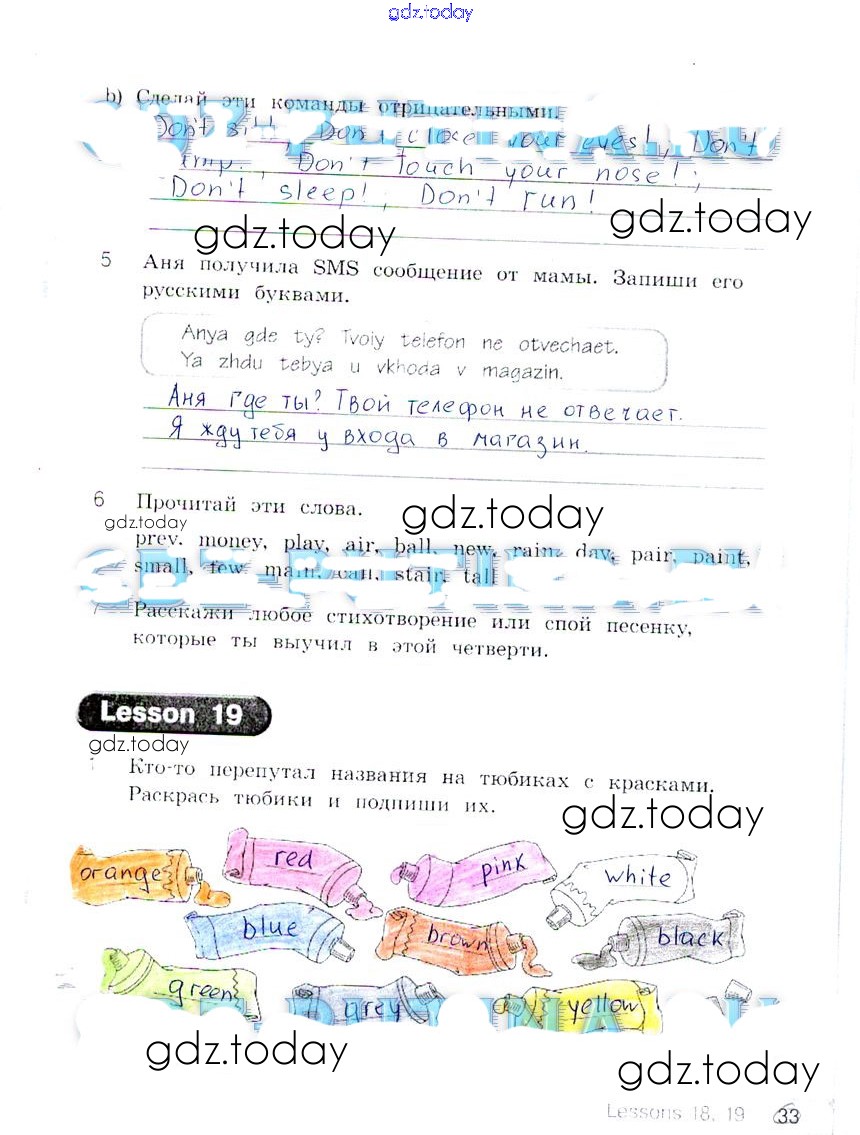 gdz.today
b) Сделай эти команды отрицательными.
Don't sit!, Don't close your eyes!, Don't
jump!, Don't touch your nose!;
Don't sleep!, Don't run!
gdz.today
gdz.today
5 Аня получила SMS сообщение от мамы. Запиши его
русскими буквами.
Anya gde ty? Tvoiy telefon ne otvechaet.
Ya zhdu tebya u vkhoda v magazin.
Аня где ты? Твой телефон не отвечает.
Я жду тебя у входа в магазин.
6 Прочитай эти слова.
gdz.today
gdz.today
prey, money, play, air, ball, new, rain, day, pair, paint,
small, few, main, call, stair, tall
7 Расскажи любое стихотворение или спой песенку,
которые ты выучил в этой четверти.
Lesson 19
gdz.today
1 Кто-то перепутал названия на тюбиках с красками.
Раскрась тюбики и подпиши их.
gdz.today
orange red pink white
blue brown black
green grey yellow
gdz.today
gdz.today
Lessons 18, 19 33